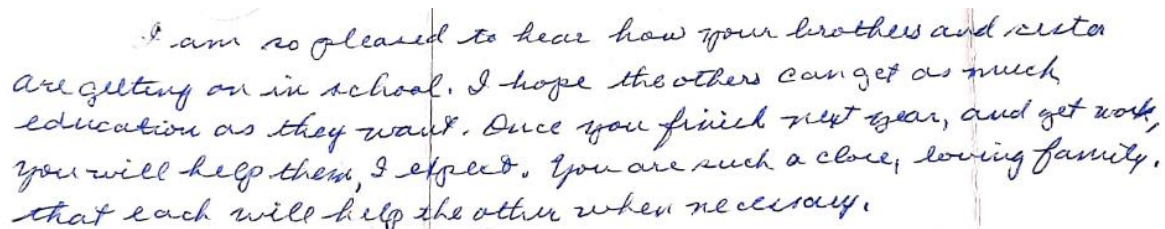 I am so pleased to hear how your brothers and sister
are getting on in school. I hope the others can get as much
education as they want. Once you finish next year, and get work,
you will help them, I expect. You are such a close, loving family.
that each will help the other when necessary.